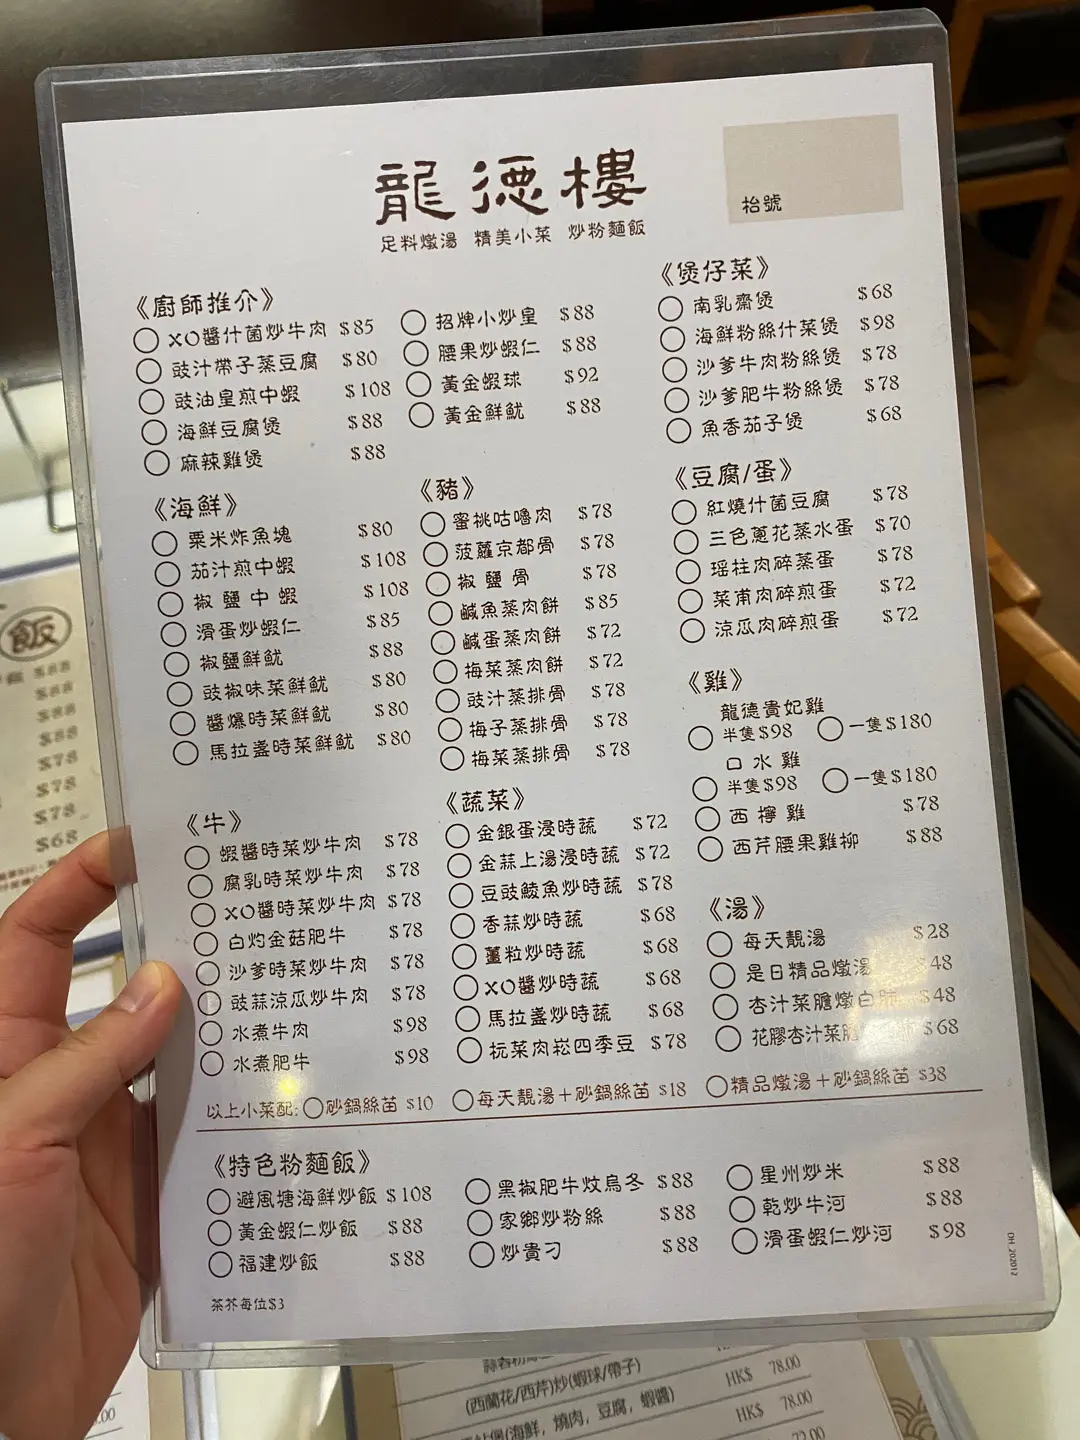 龍德樓
足料燉湯 精美小菜 炒粉麵飯
枱號
《廚師推介》
XO醬什菌炒牛肉 $85
豉汁帶子蒸豆腐 $80
豉油皇煎中蝦 $108
海鮮豆腐煲 $88
麻辣雞煲 $88
招牌小炒皇 $88
腰果炒蝦仁 $88
黃金蝦球 $92
黃金鮮魷 $88
《煲仔菜》
南乳齋煲 $68
海鮮粉絲什菜煲 $98
沙爹牛肉粉絲煲 $78
沙爹肥牛粉絲煲 $78
魚香茄子煲 $68
《海鮮》
粟米炸魚塊 $80
茄汁煎中蝦 $108
椒鹽中蝦 $108
滑蛋炒蝦仁 $85
椒鹽鮮魷 $88
豉椒味菜鮮魷 $80
醬爆時菜鮮魷 $80
馬拉盞時菜鮮魷 $80
《豬》
蜜桃咕嚕肉 $78
菠蘿京都骨 $78
椒鹽骨 $78
鹹魚蒸肉餅 $85
鹹蛋蒸肉餅 $72
梅菜蒸肉餅 $72
豉汁蒸排骨 $78
梅子蒸排骨 $78
梅菜蒸排骨 $78
《豆腐/蛋》
紅燒什菌豆腐 $78
三色蔥花蒸水蛋 $70
瑶柱肉碎蒸蛋 $78
菜甫肉碎煎蛋 $72
涼瓜肉碎煎蛋 $72
《雞》
龍德貴妃雞
半隻$98 一隻$180
口水雞
半隻$98 一隻$180
西檸雞 $78
西芹腰果雞柳 $88
《牛》
蝦醬時菜炒牛肉 $78
腐乳時菜炒牛肉 $78
XO醬時菜炒牛肉 $78
白灼金菇肥牛 $78
沙爹時菜炒牛肉 $78
豉蒜涼瓜炒牛肉 $78
水煮牛肉 $98
水煮肥牛 $98
《蔬菜》
金銀蛋浸時蔬 $72
金蒜上湯浸時蔬 $72
豆豉鯪魚炒時蔬 $78
香蒜炒時蔬 $68
薑粒炒時蔬 $68
XO醬炒時蔬 $68
馬拉盞炒時蔬 $68
抏菜肉崧四季豆 $78
《湯》
每天靚湯 $28
是日精品燉湯 $48
杏汁菜膽燉白肺 $48
花膠杏汁菜膽 $68
以上小菜配: 砂鍋絲苗 $10 每天靚湯+砂鍋絲苗 $18 精品燉湯+砂鍋絲苗 $38
《特色粉麵飯》
避風塘海鮮炒飯 $108
黃金蝦仁炒飯 $88
福建炒飯 $88
黑椒肥牛炆烏冬 $88
家鄉炒粉絲 $88
炒貴刁 $88
星州炒米 $88
乾炒牛河 $88
滑蛋蝦仁炒河 $98
茶芥每位$3
DH 202012
飯
$88
$88
$88
$88
$78
$78
$78
$68
(西蘭花/西芹)炒(蝦球/帶子) HK$ 78.00
(海鮮, 燒肉, 豆腐, 蝦醬) HK$ 78.00